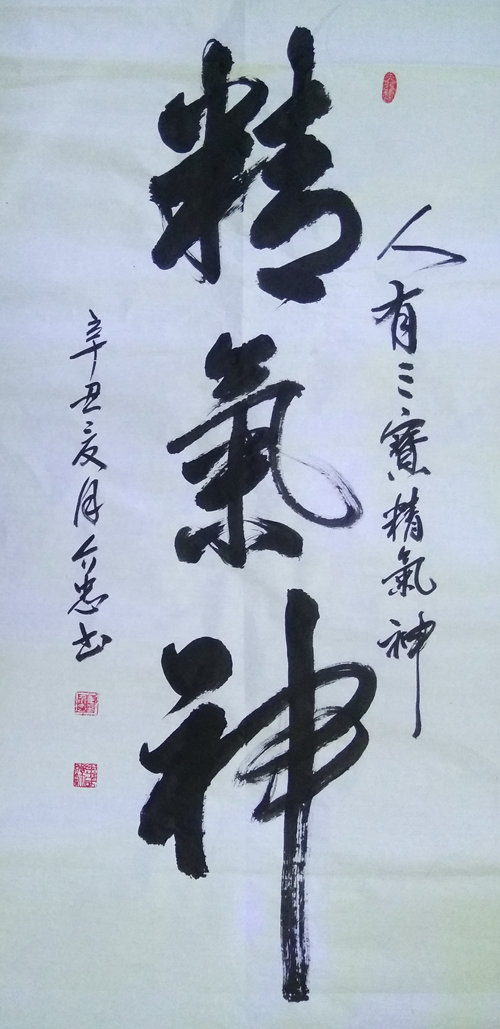 人有三寶精氣神
精氣神
辛丑夏月介忠书